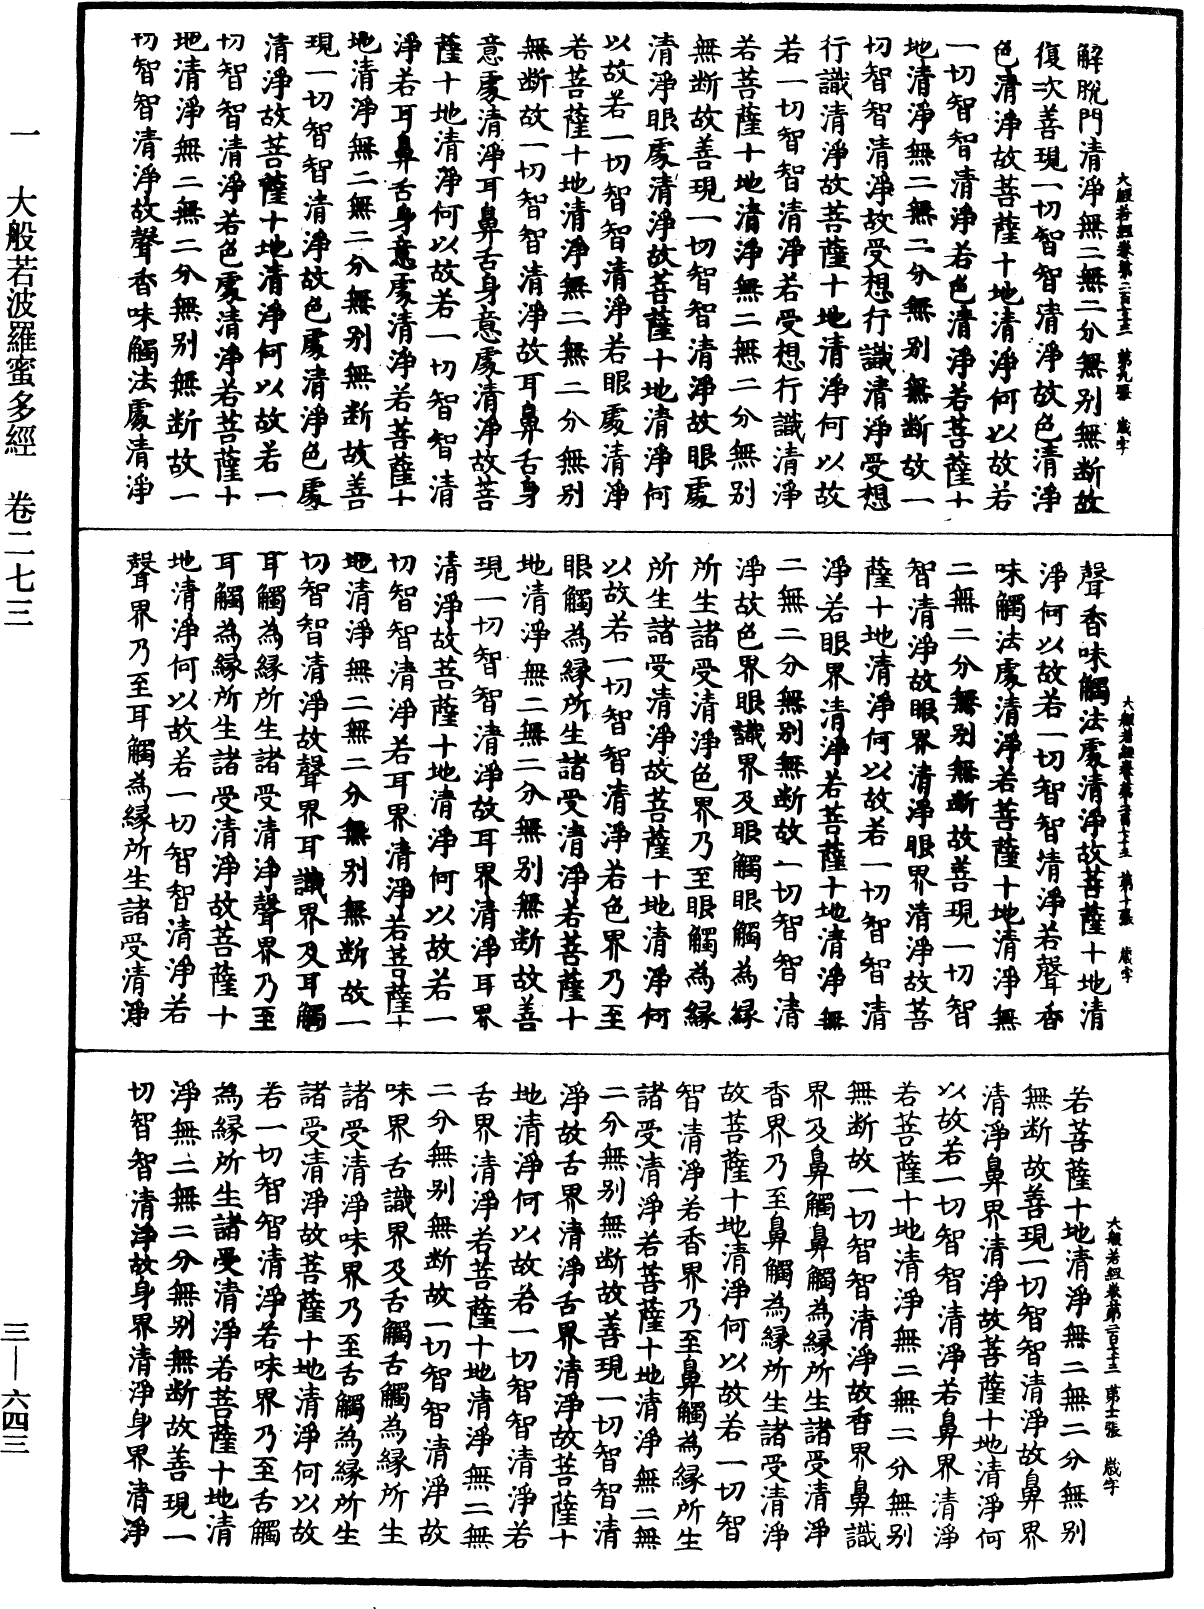 大般若經卷第二百七十三 第九張 歲字
解脫門清淨無二無二分無別無断故
復次善現一切智智清淨故色清淨
色清淨故菩薩十地清淨何以故若
一切智智清淨若色清淨若菩薩十
地清淨無二無二分無別無断故一
切智智清淨故受想行識清淨受想
行識清淨故菩薩十地清淨何以故
若一切智智清淨若受想行識清淨
若菩薩十地清淨無二無二分無別
無断故善現一切智智清淨故眼處
清淨眼處清淨故菩薩十地清淨何
以故若一切智智清淨若眼處清淨
若菩薩十地清淨無二無二分無別
無断故一切智智清淨故耳鼻舌身
意處清淨耳鼻舌身意處清淨故菩
薩十地清淨何以故若一切智智清
淨若耳鼻舌身意處清淨若菩薩十
地清淨無二無二分無別無断故善
現一切智智清淨故色處清淨色處
清淨故菩薩十地清淨何以故若一
切智智清淨若色處清淨若菩薩十
地清淨無二無二分無別無断故一
切智智清淨故聲香味觸法處清淨
大般若經卷第二百七十三 第十張 歲字
聲香味觸法處清淨故菩薩十地清
淨何以故若一切智智清淨若聲香
味觸法處清淨若菩薩十地清淨無
二無二分無別無断故善現一切智
智清淨故眼界清淨眼界清淨故菩
薩十地清淨何以故若一切智智清
淨若眼界清淨若菩薩十地清淨無
二無二分無別無断故一切智智清
淨故色界眼識界及眼觸眼觸為緣
所生諸受清淨色界乃至眼觸為緣
所生諸受清淨故菩薩十地清淨何
以故若一切智智清淨若色界乃至
眼觸為緣所生諸受清淨若菩薩十
地清淨無二無二分無別無断故善
現一切智智清淨故耳界清淨耳界
清淨故菩薩十地清淨何以故若一
切智智清淨若耳界清淨若菩薩十
地清淨無二無二分無別無断故一
切智智清淨故聲界耳識界及耳觸
耳觸為緣所生諸受清淨聲界乃至
耳觸為緣所生諸受清淨故菩薩十
地清淨何以故若一切智智清淨若
聲界乃至耳觸為緣所生諸受清淨
大般若經卷第二百七十三 第十一張 歲字
若菩薩十地清淨無二無二分無別
無断故善現一切智智清淨故鼻界
清淨鼻界清淨故菩薩十地清淨何
以故若一切智智清淨若鼻界清淨
若菩薩十地清淨無二無二分無別
無断故一切智智清淨故香界鼻識
界及鼻觸鼻觸為緣所生諸受清淨
香界乃至鼻觸為緣所生諸受清淨
故菩薩十地清淨何以故若一切智
智清淨若香界乃至鼻觸為緣所生
諸受清淨若菩薩十地清淨無二無
二分無別無断故善現一切智智清
淨故舌界清淨舌界清淨故菩薩十
地清淨何以故若一切智智清淨若
舌界清淨若菩薩十地清淨無二無
二分無別無断故一切智智清淨故
味界舌識界及舌觸舌觸為緣所生
諸受清淨味界乃至舌觸為緣所生
諸受清淨故菩薩十地清淨何以故
若一切智智清淨若味界乃至舌觸
為緣所生諸受清淨若菩薩十地清
淨無二無二分無別無断故善現一
切智智清淨故身界清淨身界清淨
一 大般若波羅蜜多經 卷二七三
三—六四三